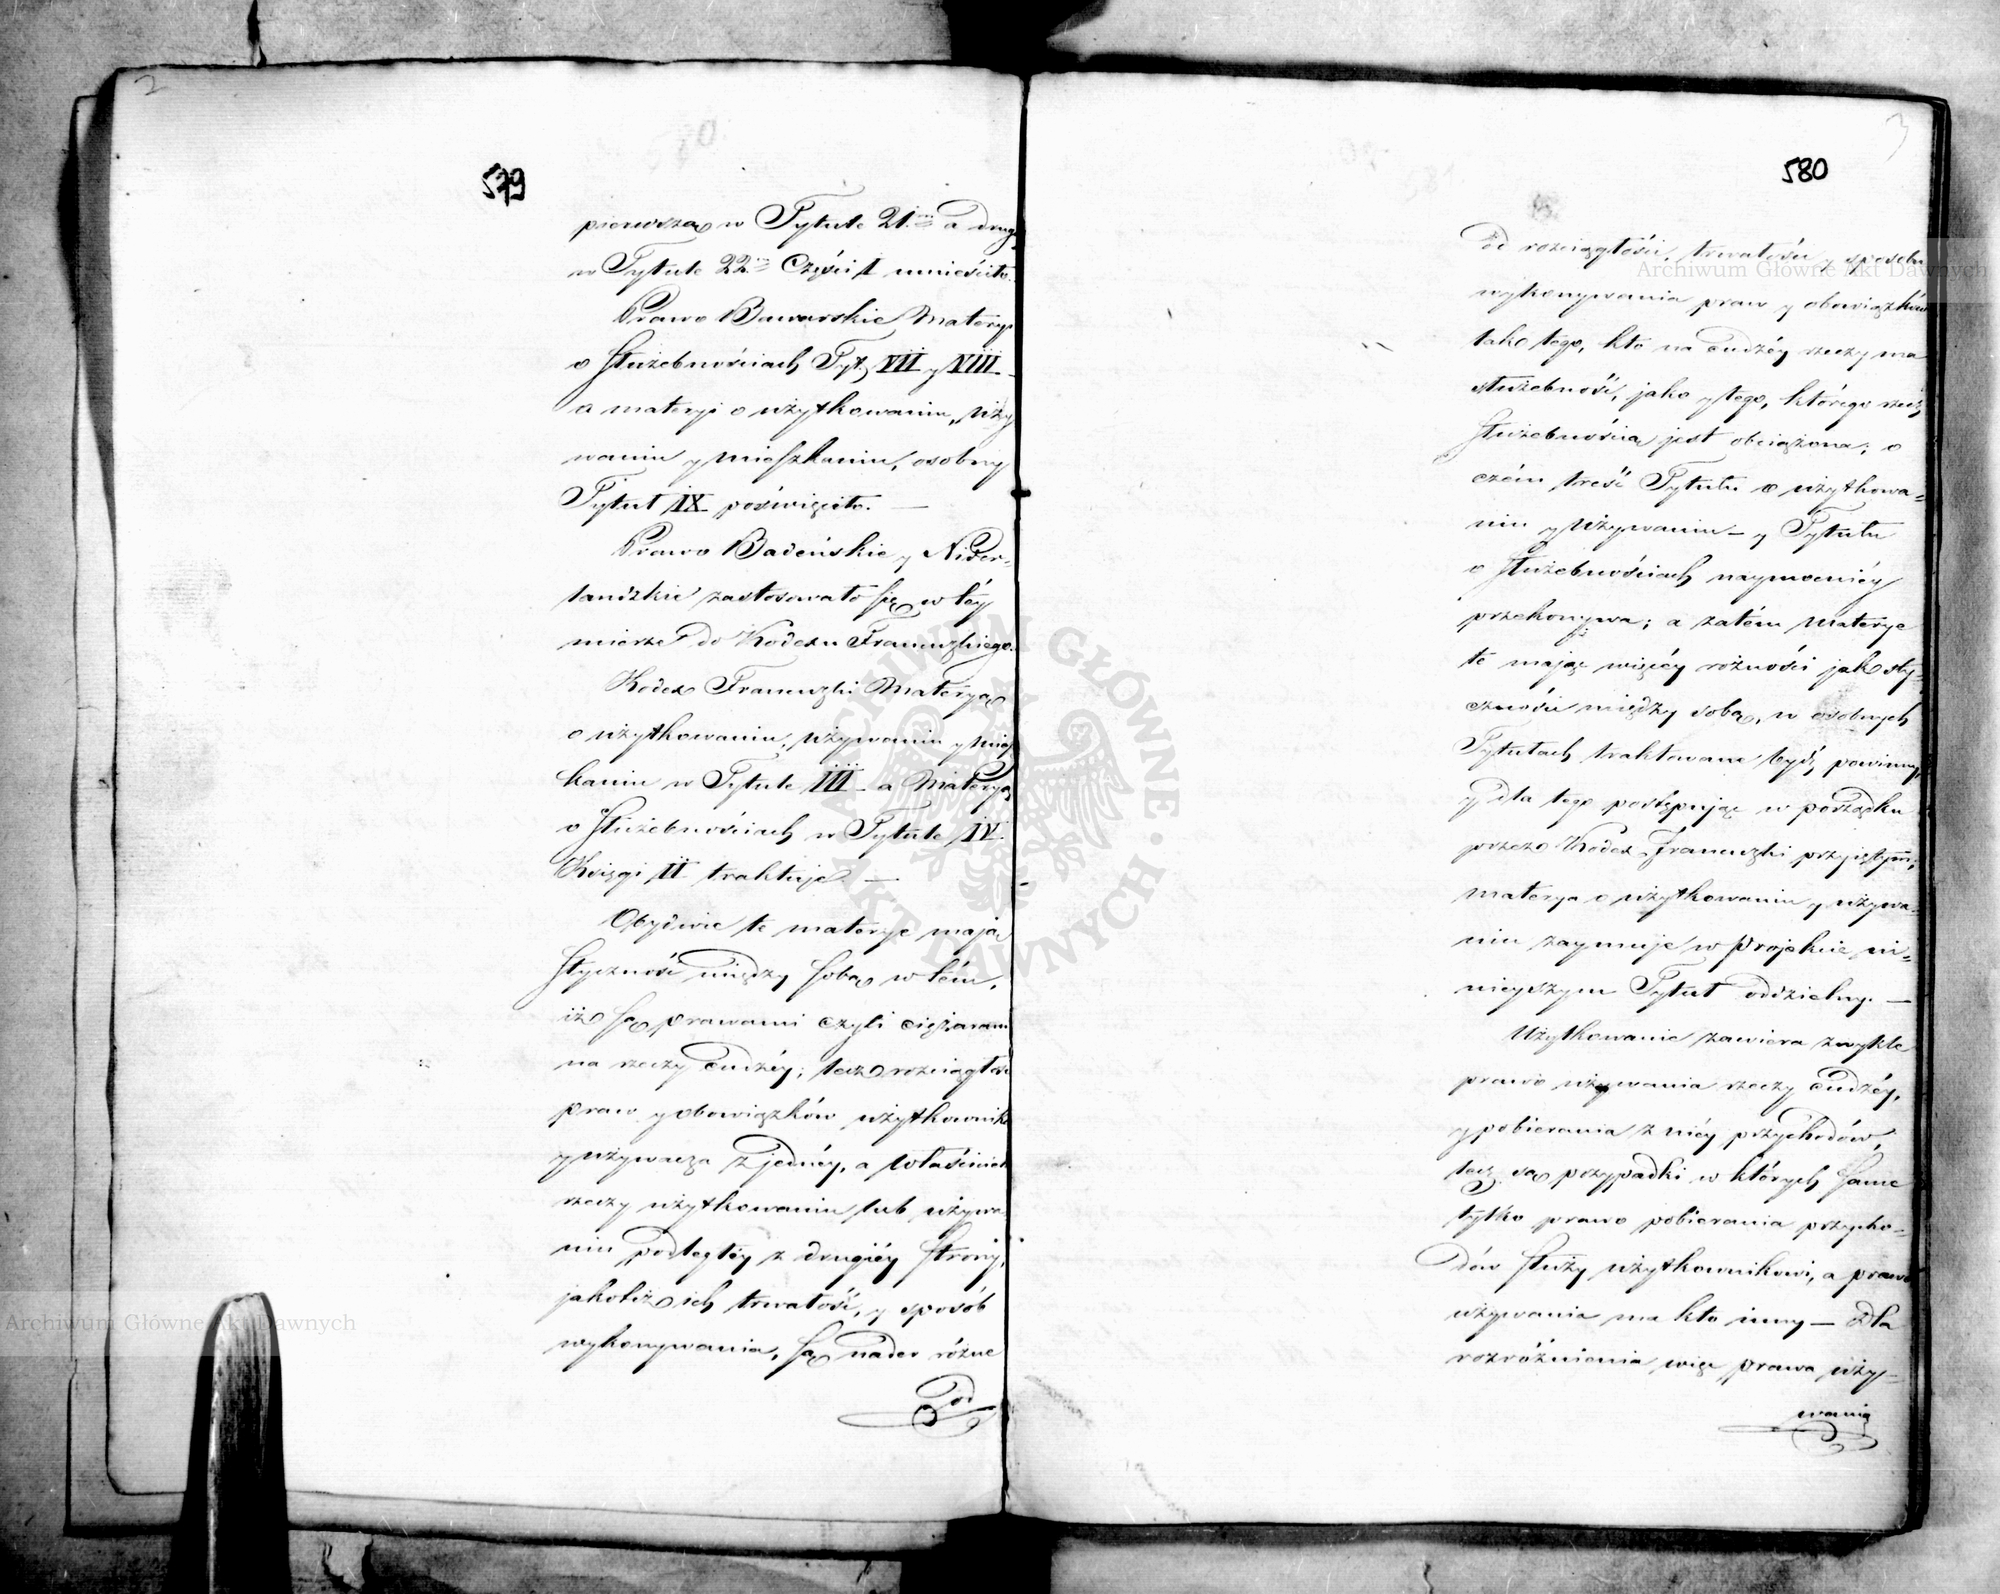 2
579
pierwszą w Tytule 21m a drugą
w Tytule 22m Części I umieściło.
Prawo Bawarskie Materyi
o Służebnościach Tyt. VII y VIII
a materyi o użytkowaniu, uży
waniu y mieszkaniu, osobny
Tytuł IX poświęciło. —
Prawo Badeńskie y Nider-
landzkie zastosowało się w téy
mierze do Kodexu Francuzkiego.
Kodex Francuzki Materyą
o użytkowaniu, używaniu y miesz
kaniu w Tytule III – a Materyą
o Służebnościach w Tytule IV.
Księgi II traktuje. —
Obydwie te materye mają
styczność między sobą w tém,
iż są prawami czyli ciężarami
na rzeczy cudzéy; lecz rozciągłość
praw y obowiązków użytkownika
y używacza z jednéy, a właściciela
rzeczy użytkowaniu lub używa
niu podległéy z drugiéy strony,
jakoliż ich trwałość, y sposób
wykonywania, są nader różne
od
3
580
od rozciągłości, trwałości y sposobu
wykonywania praw y obowiązków
tak tego, kto na cudzéy rzeczy ma
służebność, jako y tego, którego rzecz
służebnością jest obciążona; o
czém treść Tytułu o użytkowa-
niu y używaniu – y Tytułu
o Służebnościach naymocniéy
przekonywa; a zatém Materye
te mając więcéy różności jak sty-
czności między sobą, w osobnych
Tytułach traktowane bydź powinny,
y dla tego postępując w porządku
przez Kodex Francuzki przyiętym,
materya o użytkowaniu y używa-
niu zaymuje w Projekcie ni-
nieyszym Tytuł oddzielny. —
Użytkowanie zawiera zwykle
prawo używania rzeczy cudzéy,
y pobierania z niéy przychodów,
lecz są przypadki w których same
tylko prawo pobierania przycho-
dów służy użytkownikowi, a prawo
używania ma kto inny — dla
rozróżnienia więc prawa uży-
wania
Archiwum Główne Akt Dawnych
Archiwum Główne Akt Dawnych
ARCHIWUM GŁÓWNE AKT DAWNYCH